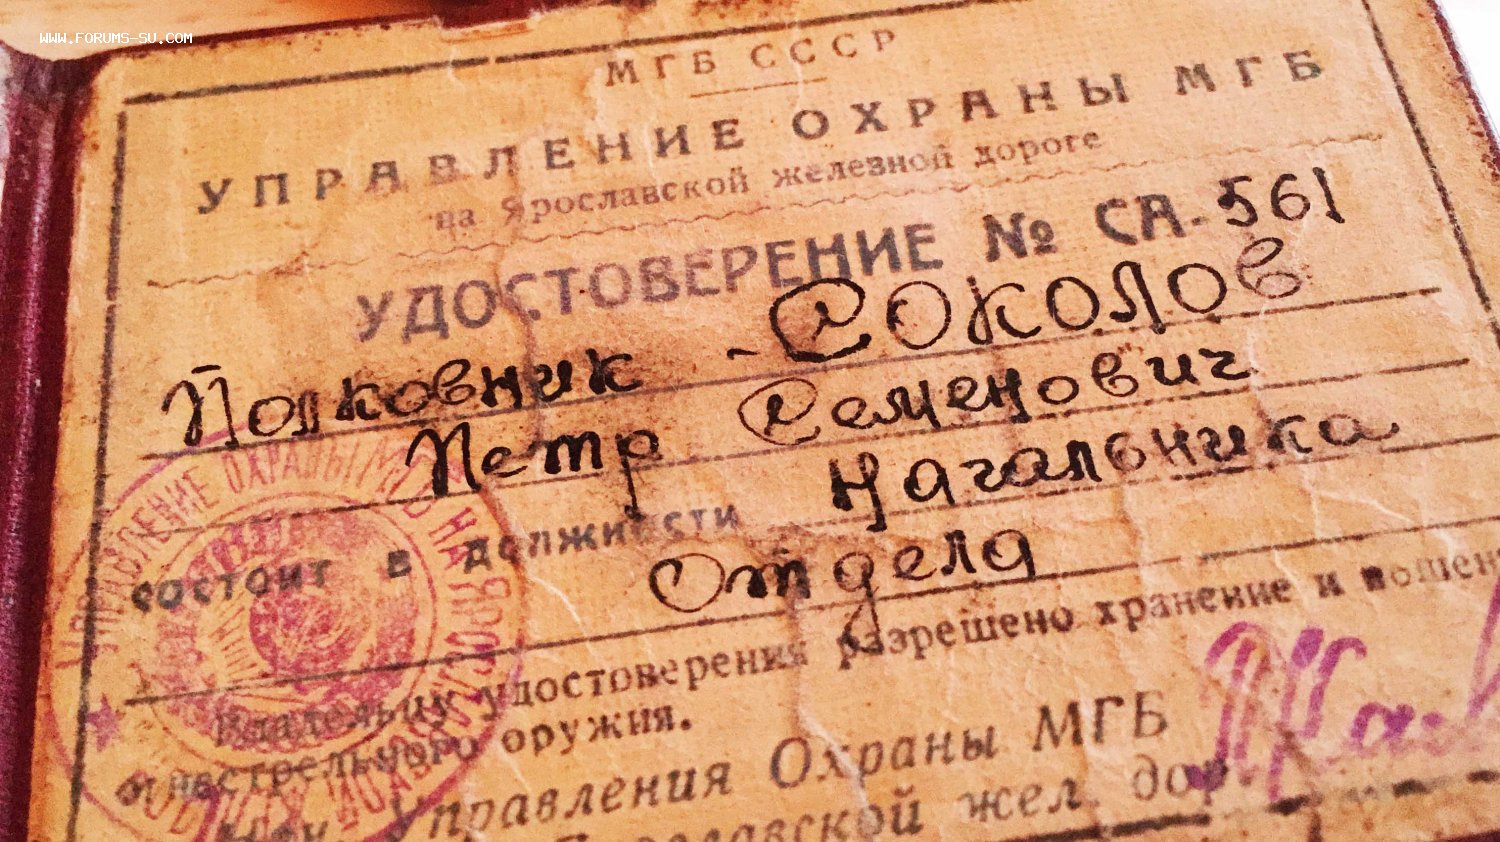 WWW.FORUMS-SU.COM
МГБ СССР
УПРАВЛЕНИЕ ОХРАНЫ МГБ
на Ярославской железной дороге
УДОСТОВЕРЕНИЕ № СА-561
Полковник - СОКОЛОВ
Петр Семенович
состоит в должности Начальника
Отдела
Владельцу удостоверения разрешено хранение и ношен
огнестрельного оружия.
Управления Охраны МГБ
жел. дор.
УПРАВЛЕНИЕ ОХРАНЫ МГБ НА ЯРОСЛАВСКОЙ